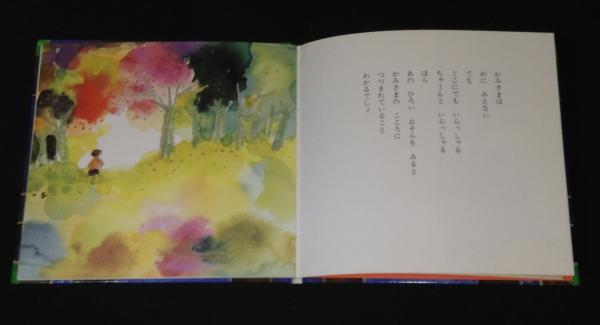 かみさまは
めに みえない
でも
どこにでも いらっしゃる
ちゃーんと いらっしゃる
ほら
あの ひろい おそらを みると
かみさまの こころに
つつまれていること
わかるでしょ